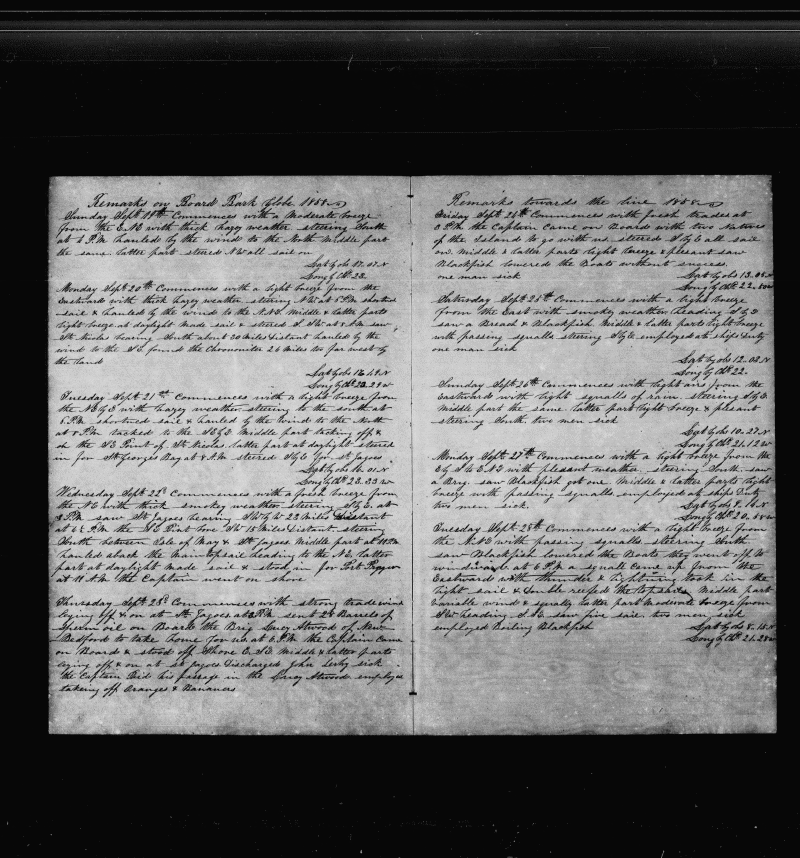 Remarks on Board Bark Globe 1858
Sunday Sept 19th Commences with a Moderate breeze
from the E.NE with thick hazy weather steering South
at 6 P.M hauled by the wind to the North Middle part
the same latter part stered NW all sail on
Lat by obs 17.07 N
Long by Chr 23.
Monday Sept 20th Commences with a light breeze from the
Eastward with thick hazy weather stering NW at 5 P.M shortned
sail & hauled by the wind to the N.NE Middle & latter parts
light breeze at daylight made sail & stered S.SW at 8 A.M saw
St Nicolas bearing South about 30 Miles Distant hauled by the
wind to the SE found the Chronomiter 26 Miles too far west by
the land
Lat by obs 16.49 N
Long by Chr 23.29 W
Tuesday Sept 21st Commences with a light breeze from
the NE by E with hazy weather steering to the south at
6 P.M shortned sail & hauled by the wind to the North
at 8 P.M tacked to the SE by E Middle part tacking off &
on the SE Point of St Nicolas latter part at daylight stered
in for St Georges Bay at 8 A.M steered S by E for St Jagoes
Lat by obs 16.01 N
Long by Chr 23.33 W
Wednesday Sept 22d Commences with a fresh breeze from
the NE with thick smokey weather steering S by E. at
P.M saw St Jagoes bearing SW by W 22 Miles Distant
at 6 P.M the SE Point bore SW 15 Miles Distant steering
South between Isle of May & St Jagoes Middle part at 11 P.M
hauled aback the Main Topsail heading to the NE latter
part at daylight made sail & stood in for Port Praya
at 11 A.M the Captain went on shore
Thursday Sept 23d Commences with strong trade wind
laying off & on at St Jagoes at P.M sent 2 Barels of
Sperm oil on Board the Brig Lucy Atwood of New
Bedford to take home for us at 6 P.M the Captain Came
on Board & stood off Shore E.SE Middle & latter parts
laying off & on at St Jagoes Discharged John sick
the Captain Paid his passage in the Lucy Atwood employed
takeing off Oranges & Bananers
Remarks towards the line 1858
Friday Sept 24th Commences with fresh trades at
3 P.M the Captain Came on Board with two Natives
of the Island to go with us stered S by E all sail
on Middle & latter parts light breeze & plesant saw
Blackfish lowered the Boats without success
one man sick
Lat by obs 13.
Long by Chr 22.
Saturday Sept 25th Commences with a light breeze
from the East with smokey weather heading S by E
saw a Breach & Blackfish Middle & latter parts light breeze
with passing squalls stering S by E employed at ships Duty
one man sick
Lat by obs 12.02 N
Long by Chr 22.
Sunday Sept 26th Commences with light airs from the
Eastward with light squalls of rain steering S by E
Middle part the same latter part light breeze & plesant
steering South. two men sick
Lat by obs 10.27 N
Long by Chr 21.12 W
Monday Sept 27th Commences with a light breeze from the
E by S & E.NE with plesant weather steering South. saw
a Brig. saw Blackfish got one Middle & latters parts light
breeze with passing squalls employed at ships Duty
two men sick.
Lat by obs 9.16 N
Long by Chr 20.
Tuesday Sept 28th Commences with a light breeze from
the N.NE with passing squalls steering South
saw Blackfish lowered the Boats they went off to
windward at 6 P.M a squall came up from the
Eastward with thunder & lightning took in the
light sail & Double reefed the top sails Middle part
variable wind & squaly latter part Moderate breeze from
SW heading S.SE saw five sail two men sick
employed Boiling Blackfish
Lat by obs 8.15 N
Long by Chr 21.28 W